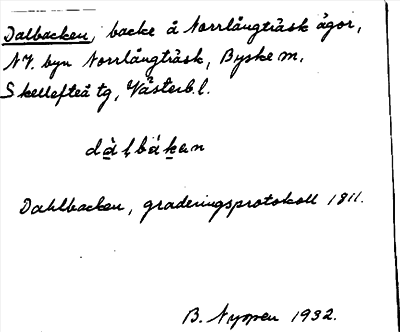 Dalbacken, backe å Norrlångträsk ägor,
NV. byn Norrlångträsk, Byske m,
Skellefteå tg, Västerb. l.
dàlbákan
Dahlbacken, graderingsprotokoll 1811.
B. Nyman 1932.